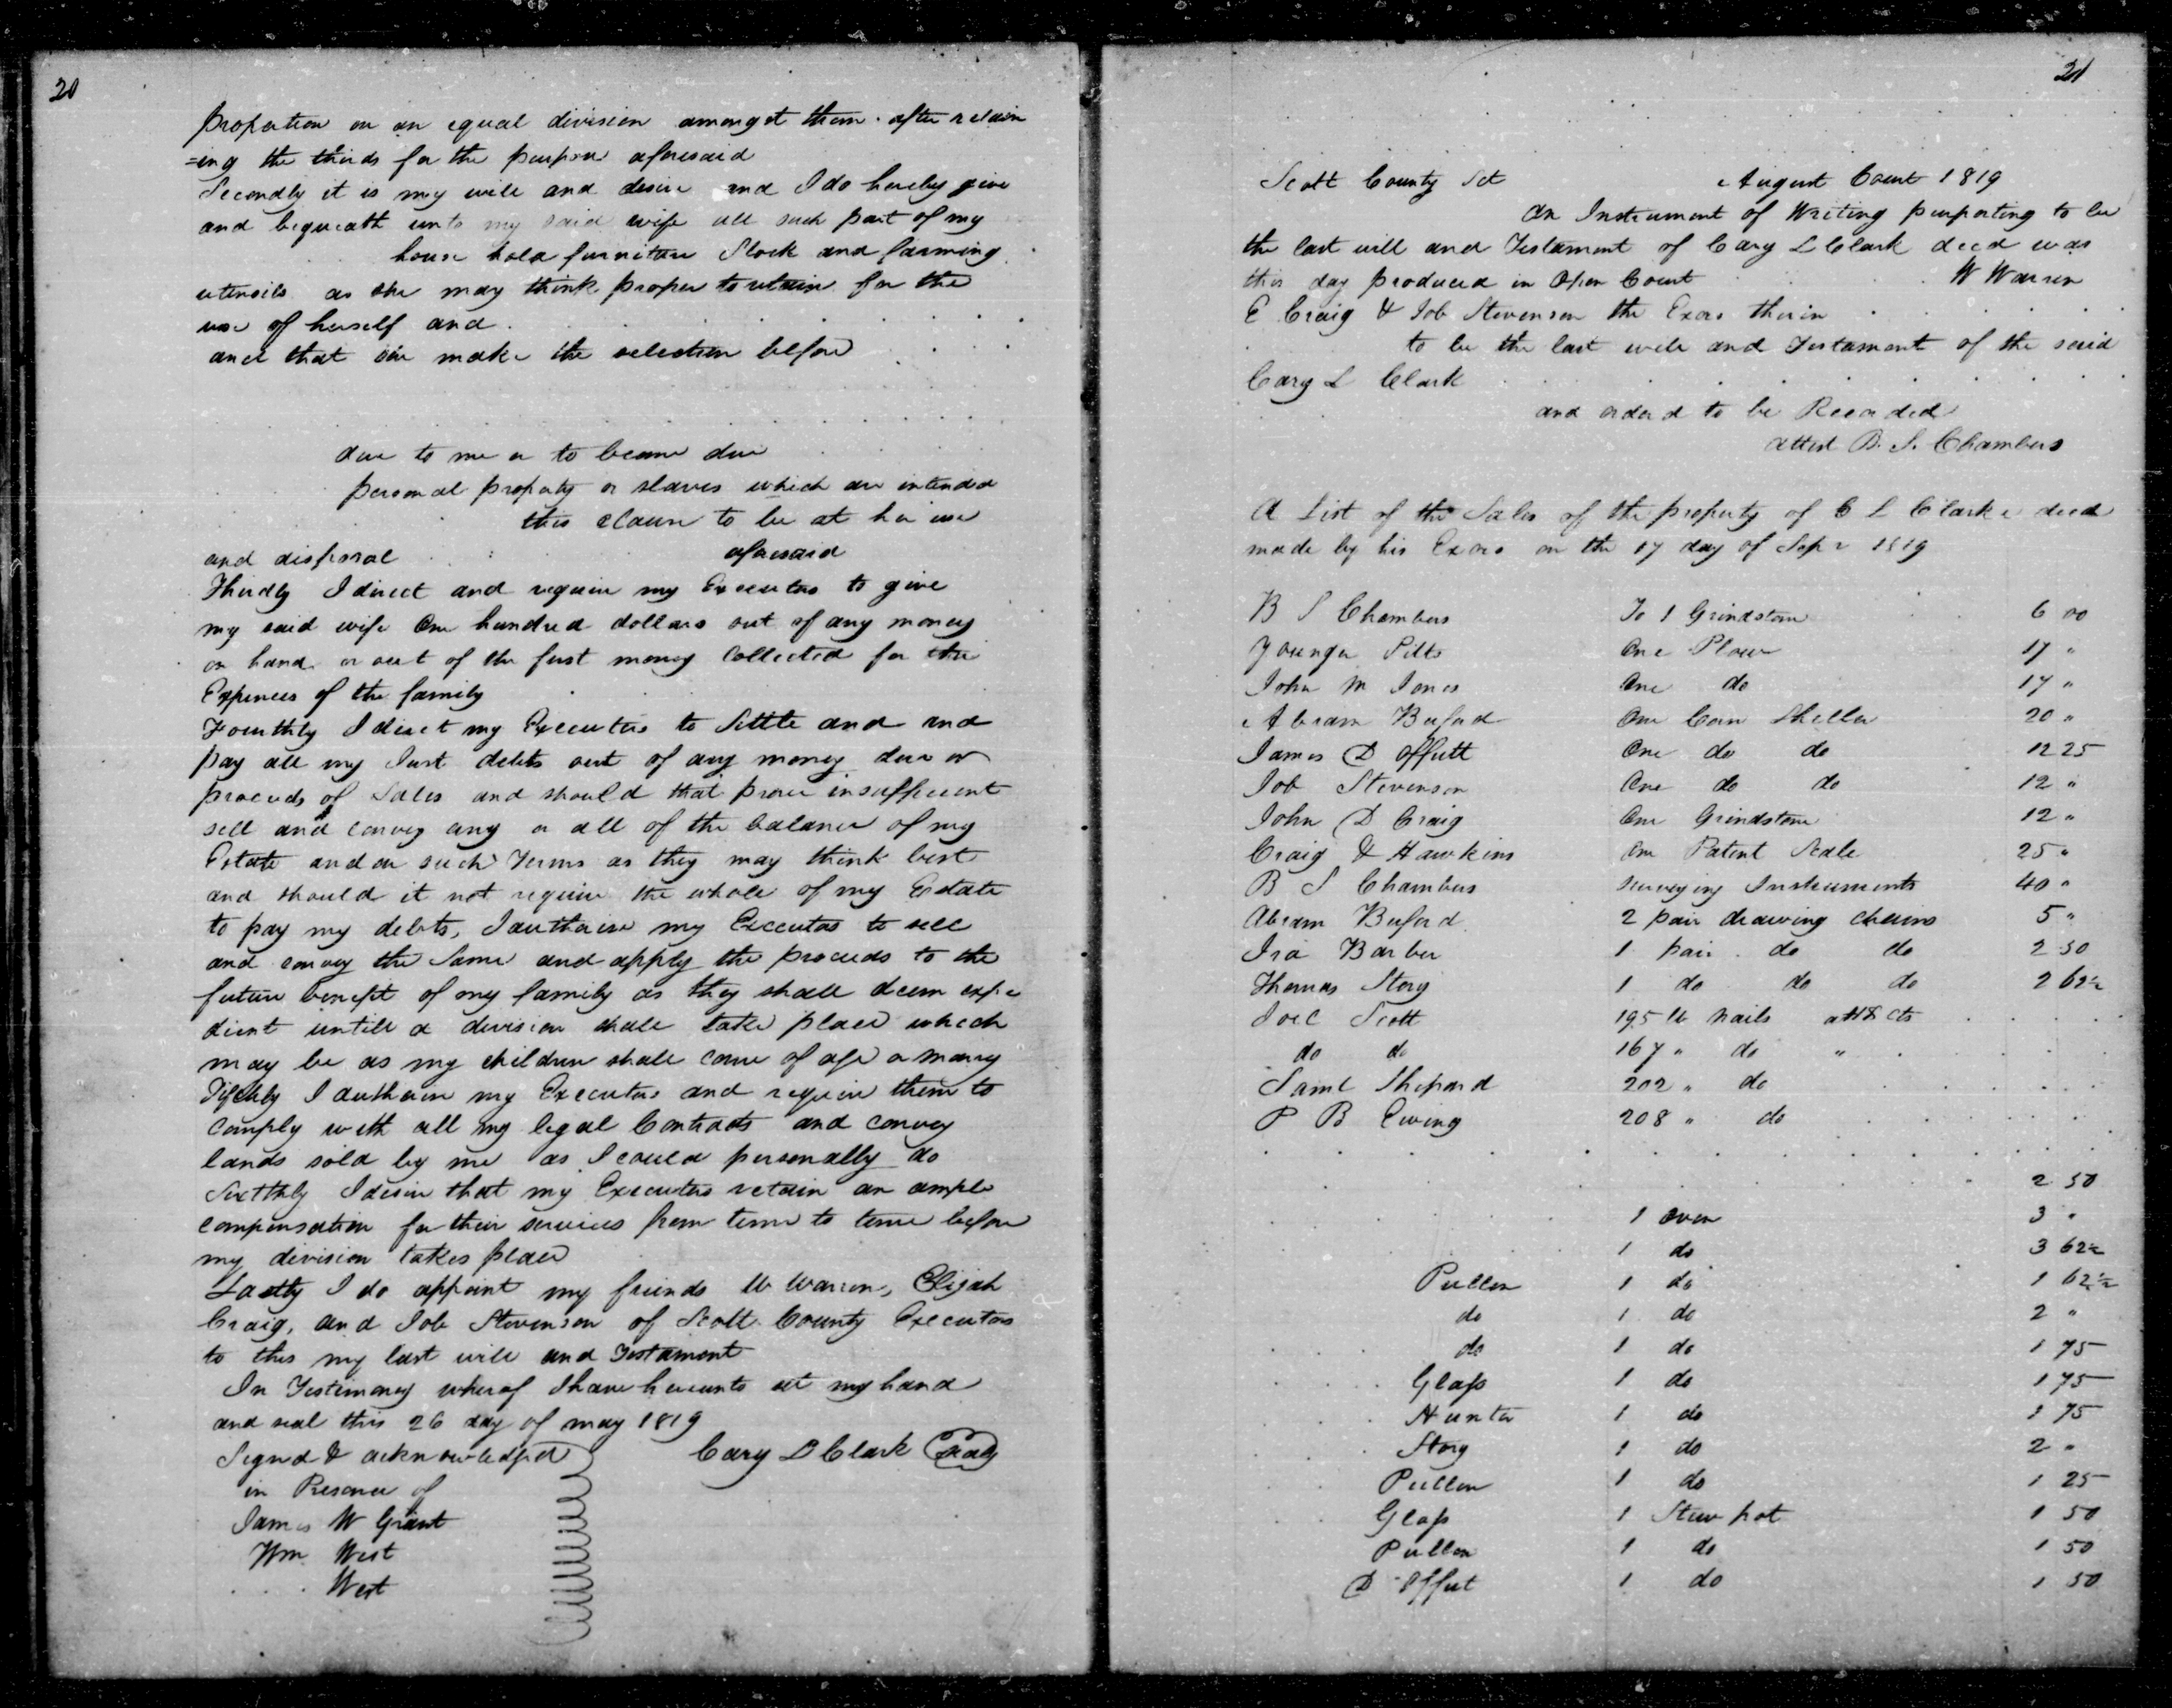 20
proportion on an equal division amongst them. after retain
=ing the thirds for the purpose aforesaid
Secondly it is my will and desire and I do hereby give
and bequeath unto my said wife all such part of my
house hold furniture Stock and farming
utensils as she may think proper to retain for the
use of herself and . . . . . . . .
and that she make the selection before . . . .
. . . . . . . . . .
due to me or to become due . . . .
personal property or slaves which are intended
this clause to be at her use
and disposal . . : . aforesaid
Thirdly I direct and require my Executors to give
my said wife One hundred dollars out of any money
on hand or out of the first money Collected for the
Expences of the family
Fourthly I direct my Executors to Settle and and
pay all my Just debts out of any money due or
proceeds of Sales and should that prove insufficient
sell and convey any or all of the balance of my
Estate and on such Terms as they may think best
and should it not require the whole of my Estate
to pay my debts, I authorise my Executors to sell
and convey the Same and apply the proceeds to the
future benefit of my family as they shall deem expe
dient untill a division shall take place which
may be as my children shall come of age or marry
Fifthly I authorise my Executors and require them to
comply with all my legal Contracts and convey
lands sold by me as I could personally do
Sixthly I desire that my Executors retain an ample
compensation for their services from time to time before
my division takes place
Lastly I do appoint my friends W Warren, Elijah
Craig, and Job Stevenson of Scott County Executors
to this my last will and Testament
In Testimony whereof I have hereunto set my hand
and seal this 26 day of may 1819
Signed & acknowledged Cary L Clark Seal
in Presence of
James W Grant
Wm West
. . . . West
21
Scott County Sct August Court 1819
An Instrument of Writing purporting to be
the last will and Testament of Cary L Clark decd was
this day produced in Open Court . . . W Warren
E Craig & Job Stevenson the Exors therein . . . . .
to be the last will and Testament of the said
Cary L Clark . . . . . . . . .
and orderd to be Recorded
attest B. S. Chambers
A List of the Sales of the property of C L Clarke decd
made by his Exors on the 17 day of Sepr 1819
B S Chambers To 1 Grindstone 6 00
Younger Pitts One Plow 17 "
John M Jones One do 17 "
Abram Buford One Corn Sheller 20 "
James D Offutt One do do 12 25
Job Stevenson One do do 12 "
John D Craig One Grindstone 12 "
Craig & Hawkins One Patent Scale 25 "
B S Chambers surveying Instruments 40 "
Abram Buford 2 pair drawing chains 5 "
Ira Barber 1 pair do do 2 50
Thomas Story 1 do do do 2 62½
Joel Scott 195 lb nails at 18 cts . . . .
do do 167 " do " . . . .
Saml Shepard 202 " do . . . . .
P B Ewing 208 " do . . . .
. . . . . . . . . . . . .
. . . . . . . . . . 2 50
. . . . . 1 oven 3 "
. . . . 1 do 3 62½
Pullen 1 do 1 62½
do 1 do 2 "
. . . do 1 do 1 75
. . . . Glass 1 do 1 75
. . . Hunter 1 do 1 75
. . . Story 1 do 2 "
. . Pullen 1 do 1 25
. . Glass 1 Stew pot 1 50
Pullen 1 do 1 50
D Offut 1 do 1 50